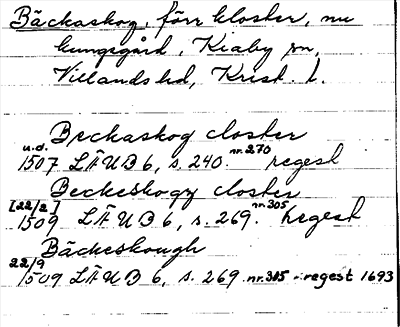 Bäckaskog, förr kloster, nu
kungsgård, Kiaby sn,
Villands hd, Krist. l.
Beckaskog closter
u.d.
1507 LÄUB 6, s. 240. nr. 270 regest
Beckeskogz closter
[22/2]
1509 LÄUB 6, s. 269. nr. 305 regest
Bäckeskough
22/9
1509 LÄUB 6, s. 269 nr. 305 - regest 1693